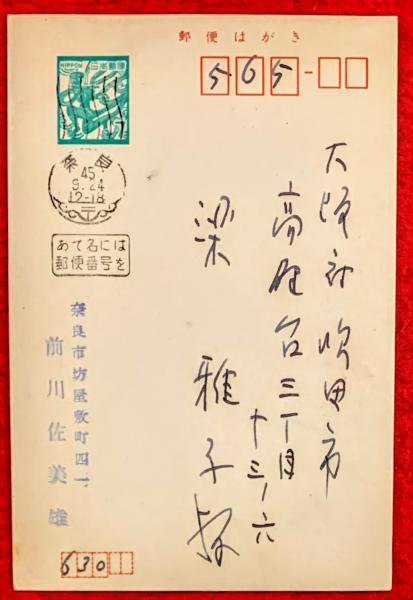 郵便はがき
NIPPON 日本郵便
7
565
奈良
45
9.24
12-18
〒
あて名には
郵便番号を
大阪府吹田市
高野台三丁目
十三ノ六
梁雅子様
奈良市坊屋敷町四一
前川佐美雄
630